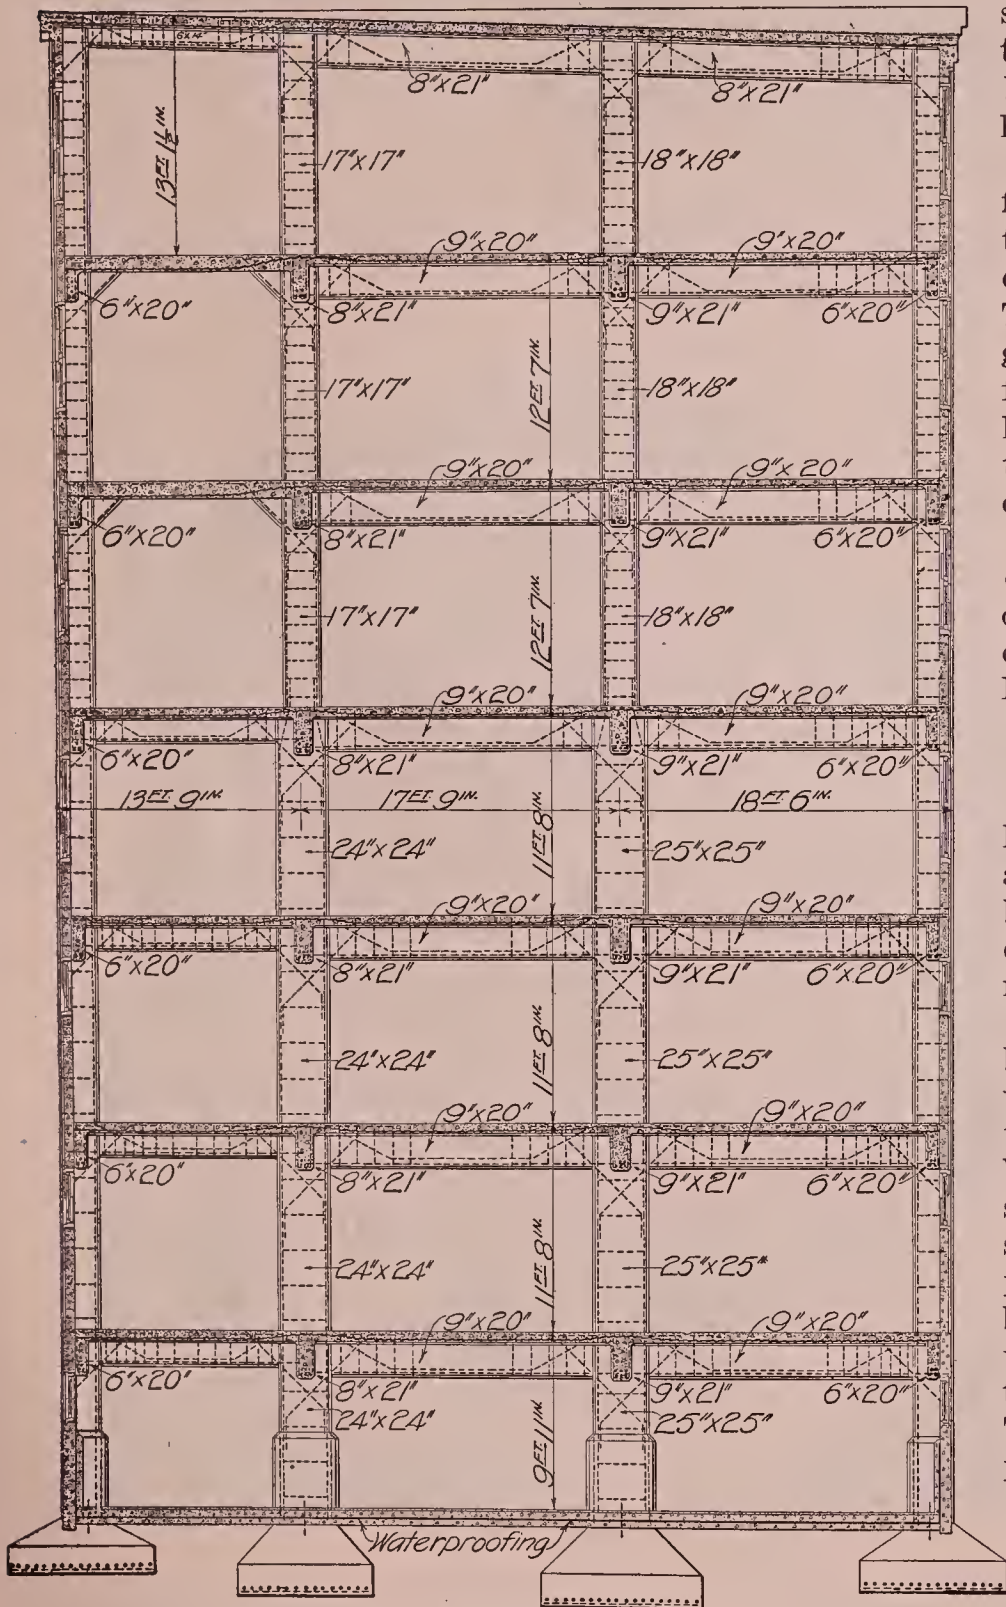 6"x14"
8"x21" 8"x21"
13 FT. 1½ IN.
17"x17" 18"x18"
9"x20" 9"x20"
6"x20" 8"x21" 9"x21" 6"x20"
12 FT. 7 IN.
17"x17" 18"x18"
9"x20" 9"x20"
6"x20" 8"x21" 9"x21" 6"x20"
12 FT. 7 IN.
17"x17" 18"x18"
9"x20" 9"x20"
6"x20" 8"x21" 9"x21" 6"x20"
13 FT. 9 IN. 17 FT. 9 IN. 18 FT. 6 IN.
11 FT. 8 IN.
24"x24" 25"x25"
9"x20" 9"x20"
6"x20" 8"x21" 9"x21" 6"x20"
11 FT. 8 IN.
24"x24" 25"x25"
9"x20" 9"x20"
6"x20" 8"x21" 9"x21" 6"x20"
11 FT. 8 IN.
24"x24" 25"x25"
9"x20" 9"x20"
6"x20" 8"x21" 9"x21" 6"x20"
24"x24" 25"x25"
9 FT. 11 IN.
Waterproofing